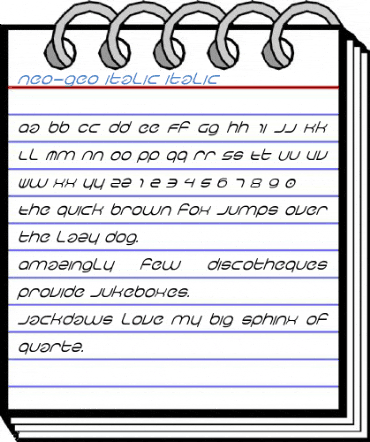 neo-geo italic italic
aa bb cc dd ee ff gg hh ii jj kk
ll mm nn oo pp qq rr ss tt uu vv
ww xx yy zz 1 2 3 4 5 6 7 8 9 0
the quick brown fox jumps over
the lazy dog.
amazingly few discotheques
provide jukeboxes.
jackdaws love my big sphinx of
quartz.